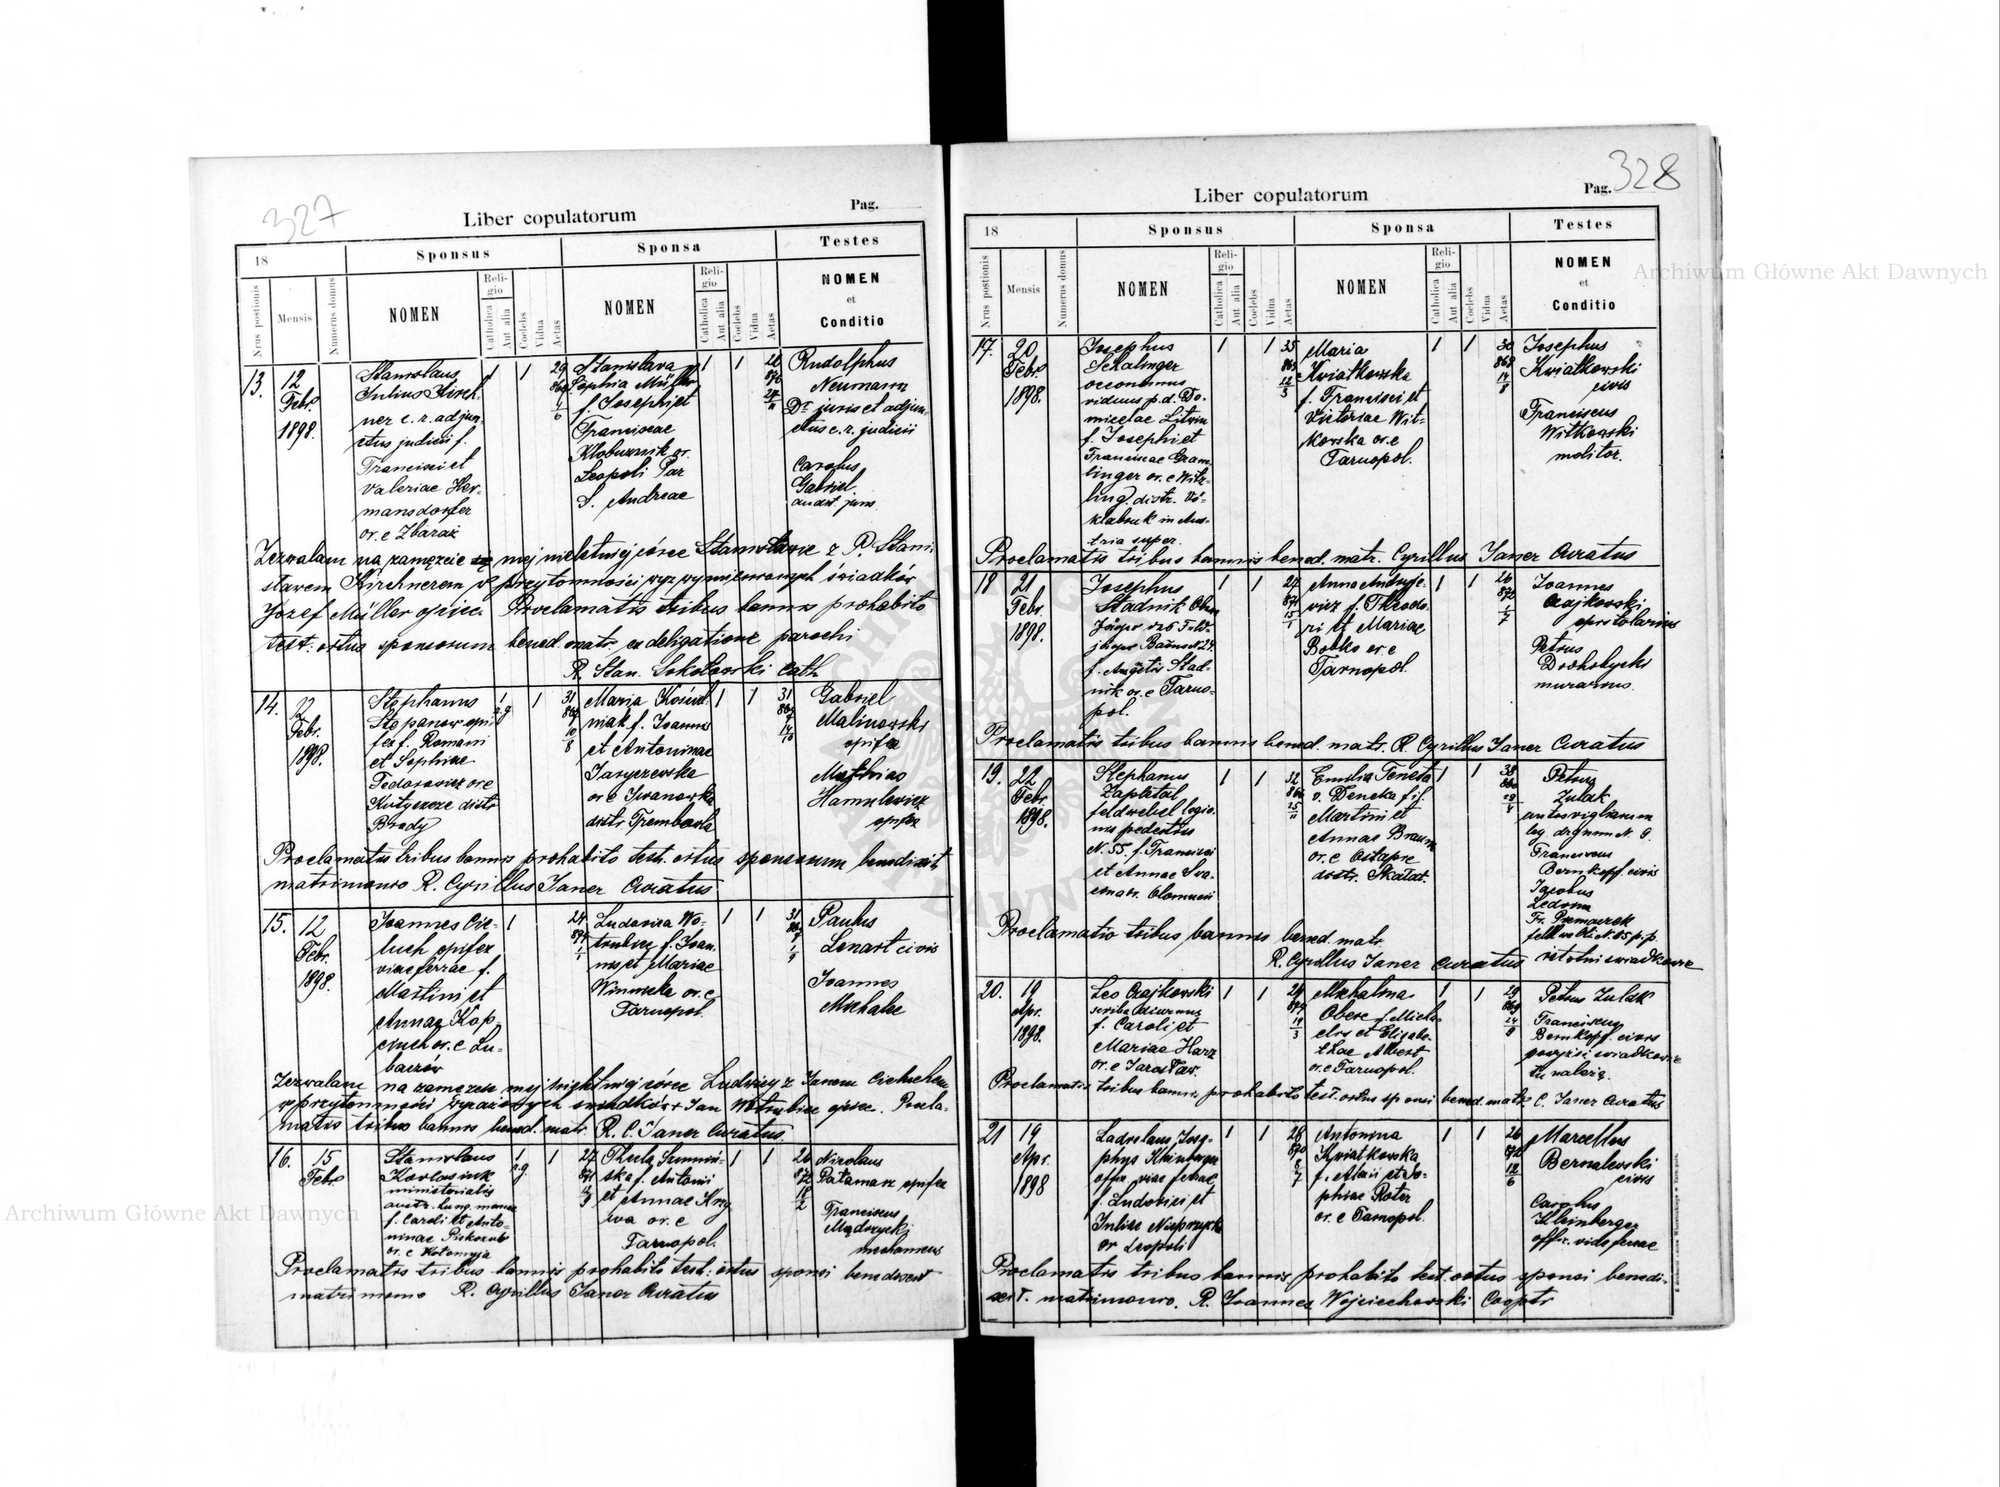 327
Liber copulatorum
Pag.
18
Sponsus
Sponsa
Testes
Nrus postionis
Mensis
Numerus domus
NOMEN
Religio
Catholica
Aut alia
Coelebs
Vidua
Aetas
NOMEN
Religio
Catholica
Aut alia
Coelebs
Vidua
Aetas
NOMEN
et
Conditio
13.
12
Febr.
1898.
Stanislaus
Julius Kirch-
ner c. r. adjun
ctus judicii f.
Francisci et
Valeriae Her-
mansdorfer
or. e Zbaraż
1
1
29
Stanislava
Sophia Müller
f. Josephi et
Franciscae
Kłobuznik or.
Leopoli Par
S. Andreae
1
1
Rudolphus
Neumann
Dr juris et adjun-
ctus c. r. judicii
Carolus
Gabriel
Zezwalam na zamęzcie mej nieletniej córce Stanisławie z P. Stani-
sławem Kirchnerem w przytomności wyz wymienionych świadków
Józef Müller ojciec. Proclamatis tribus bannis prohabito
test: ortus sponsorum bened. matr. ex deligatione parochi
R. Stan. Sokołowski Cath.
14.
22
Febr.
1898.
Stephanus
Stepanow opi-
fex f. Romani
et Sophiae
Fedorowicz or. e
Kutyszcze distr
Brody
1
r. g.
1
31
869
10
8
Maria Kośció
niak f. Joannis
et Antoninae
Jaryczewska
or. e Iwanowka
distr. Trembowla
1
1
31
Gabriel
Malinowski
opifex
Mathias
Hamulewicz
opifex
Proclamatis tribus bannis prohabito test. ortus sponsorum benedixit
matrimonio R. Cyrillus Janer Curatus
15.
12
Febr.
1898.
Joannes Cie-
luch opifex
viae ferrae f.
Martini et
Annae Kop-
ciuch or. e Lu-
baczów
1
24
Ludovica Wo-
trubiec f. Joan-
nis et Mariae
Winnicka or. e
Tarnopol.
1
1
31
Paulus
Lenart civis
Joannes
Michalec
Zezwalam na zamęzcie mej nieletniej córce Ludwicy z Janem Cieluchem
w przytomności wyrażonych świadków + Jan Wotrubiec ojciec. Procla-
matis tribus bannis bened. matr. R. C. Janer Curatus.
16.
15
Febr.
Stanislaus
ministerialis
f. Caroli et Anto-
ninae
or. e Kołomyja
1
r. g.
1
27
871
ska f. Antonii
et Annae
or. e
Tarnopol.
1
1
26
872
18
2
Nicolaus
Patamarz opifex
Franciscus
Mądrzycki
mechanicus
Proclamatis tribus bannis prohabito test: ortus sponsi benedixit
matrimonio R. Cyrillus Janer Curatus
328
Liber copulatorum
Pag.
18
Sponsus
Sponsa
Testes
Nrus postionis
Mensis
Numerus domus
NOMEN
Religio
Catholica
Aut alia
Coelebs
Vidua
Aetas
NOMEN
Religio
Catholica
Aut alia
Coelebs
Vidua
Aetas
NOMEN
et
Conditio
17.
20
Febr.
1898.
Josephus
Schalinger
oeconomus
viduus p. d. Do-
micelae Litwin
f. Josephi et
Franciscae Gram-
linger or. e Witz-
ling distr. Vö-
klabruk in Aus-
tria super.
1
1
35
Maria
Kwiatkowska
f. Francisci et
Victoriae Wit-
kowska or. e
Tarnopol.
1
1
30
868
14
8
Josephus
Kwiatkowski
civis
Franciscus
Witkowski
molitor.
Proclamatis tribus bannis bened. matr. Cyrillus Janer Curatus
18
21
Febr.
1898.
Josephus
Stadnik Ober
Jäger des Feld-
jäger Baons N 24.
f. Stad-
nik or. e Tarno-
pol.
1
1
27
871
15
1
Anna Andryje-
wicz f. Theodo-
ri et Mariae
Bobko or. e
Tarnopol.
1
1
26
872
1
7
Joannes
Czajkowski
epistolarius
Petrus
murarius.
Proclamatis tribus bannis bened. matr. R. Cyrillus Janer Curatus
19.
22
Febr.
1898.
Stephanus
Zapletal
feldwebel legio-
nis pedestris
N. 55. f. Francisci
et Annae
Olomucii
1
1
32
Emilia Feneta
v. Deneka f. if.
Martini et
Annae Braun
or. e Ostapie
distr. Skałat.
1
1
38
Petrus
Zulak
leg. drgnum N. 9.
Franciscus
Bernkopf civis
Jacobus
Ledorm
Proclamatis tribus bannis bened. matr
R. Cyrillus Janer Curatus
istotni swiadkowie
20.
19
Apr.
1898.
Leo Czajkowski
scriba diurnus
f. Caroli et
Mariae Harz
or. e Jarosław.
1
1
24
Michalina
Oberc f. Micha-
elis et Elisabe-
thae Albert
or. e Tarnopol.
1
1
29
Petrus Zulak
Franciscus
Bernkopf. civis
powyżsi swiadkowie
tu należą.
Proclamatis tribus bannis prohabito test. ortus sponsi bened. matr. C. Janer Curatus
21
19
Apr.
1898
Ladislaus Jose-
phus Kleinberger
offic. viae ferrae,
f. Ludovici et
Juliae
or Leopoli
1
1
28
870
8
7
Antonina
Kwiatkowska
f. Alexii et So-
phiae Roter
or. e Tarnopol.
1
1
26
872
12
6
Marcellus
Bernalewski
civis
Carolus
Kleinberger
offic. viae ferrae
Proclamatis tribus bannis prohabito test. ortus sponsi benedi-
xit matrimonio. R. Joannes Wojciechowski Cooptr
Archiwum Główne Akt Dawnych
Archiwum Główne Akt Dawnych